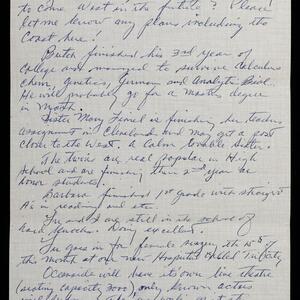 to come West in the future? Please
let me know any plans including the
Coast here!
Butch finished his 3rd year of
College and managed to survive Calculus
Chem, Genetics, German and Analytic Biol.
He will probably go for a Master degree
in Month.
Sister Mary is finishing her teaching
assignment in Cleveland and may get a post
closer to the West. A Calm lovable Sister.
The twins are real popular in High
School and are finishing their 2nd year as
honor students.
Barbara finished 1st grade with straight
A's in reading and etc.
and I are still in the school of
Doing excellent.
goes in for female surgery the 15th of
this month at our new Hospital called Tri City
Oceanside will have its own live theatre
(seating capacity 3000) only known actors